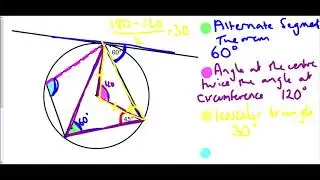 180-120
2
=30
60°
120
60°
Alternate Segment
Theorem
60°
Angle at the centre
twice the angle at
circumference 120°
Isosceles triangle
30°